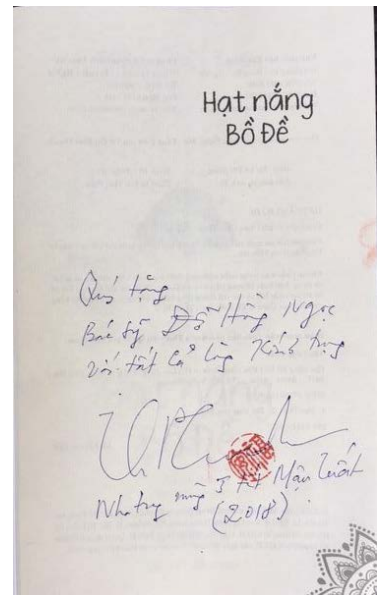 Hạt nắng
Bồ Đề
Quý tặng
Bác sỹ Đỗ Hồng Ngọc
với tất cả lòng Kính trọng
Nha trang mùng 3 tết Mậu Tuất
(2018)